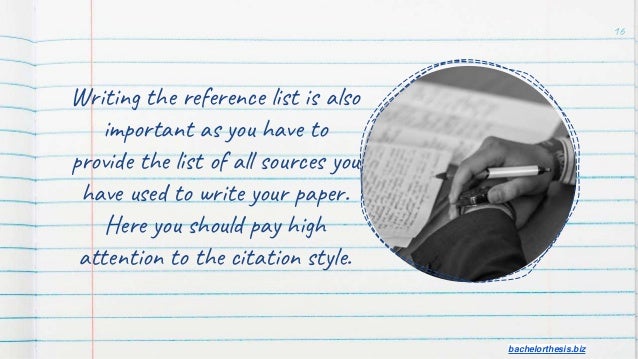 16
Writing the reference list is also
important as you have to
provide the list of all sources you
have used to write your paper.
Here you should pay high
attention to the citation style.
bachelorthesis.biz